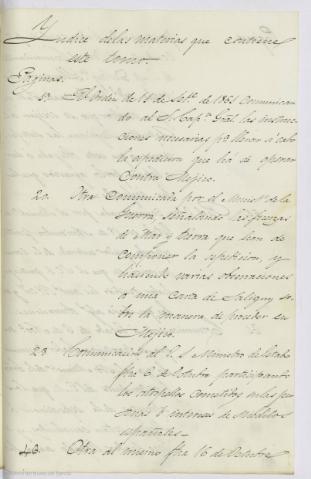 Yndice de las materias que contiene
este tomo.
Paginas.
5. Rl. Orden de 18 de Set.e de 1861 comunican
do al S. Cap.n Gral. las instruc
ciones necesarias p.a llevar á cabo
la espedicion que ha de operar
contra Mejico.
20. Otra comunicada por el Minist.o de la
Guerra, señalando las fuerzas
de Mar y tierra que han de
componer la espedicion, y
haciendo varias observaciones
á una Carta de Saligny so-
bre la manera de proceder en
Mejico.
28 Comunicacion al E. S. Ministro de Estado
fha 6 de Octubre participando
los atropellos cometidos en las per
sonas é intereses de súbditos
españoles.
46. Otra al mismo fha 16 de Octubre